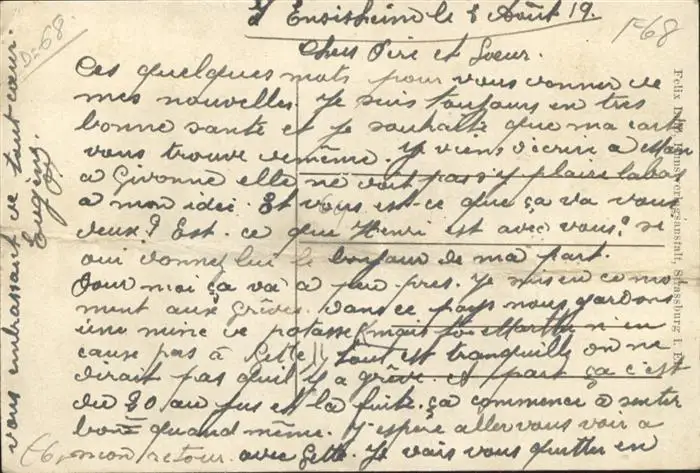 Ensisheim le 8 Août 19.
Chers Père et Soeur.
Ces quelques mots pour vous donner de
mes nouvelles. Je suis toujours en très
bonne santé et je souhaite que ma carte
vous trouve demême. Je viens d'écrire à
a Givonne elle ne doit pas s'y plaire labas
a mon idei. Et vous est-ce que ça va vous
deux? Est-ce que Henri est avec vous? si
oui donnez lui le bonjour de ma part.
Pour moi ça va à peu près. Je suis en ce mo
ment aux grèves. Dans ce pays nous gardons
une mine de potasse (mais toi Marthe n'en
cause pas à Gette) tout est tranquille on ne
dirait pas qu'il y a grève. et part ça c'est
du 30 au jus et la fuite. ça commence à sentir
bon quand même. J'espère aller vous voir à
mon retour avec Gette. Je vais vous quitter en
vous embrassant de tout coeur.
Eugène
D-68.
1-68
Felix Kunstverlagsanstalt, Strassburg i. E.